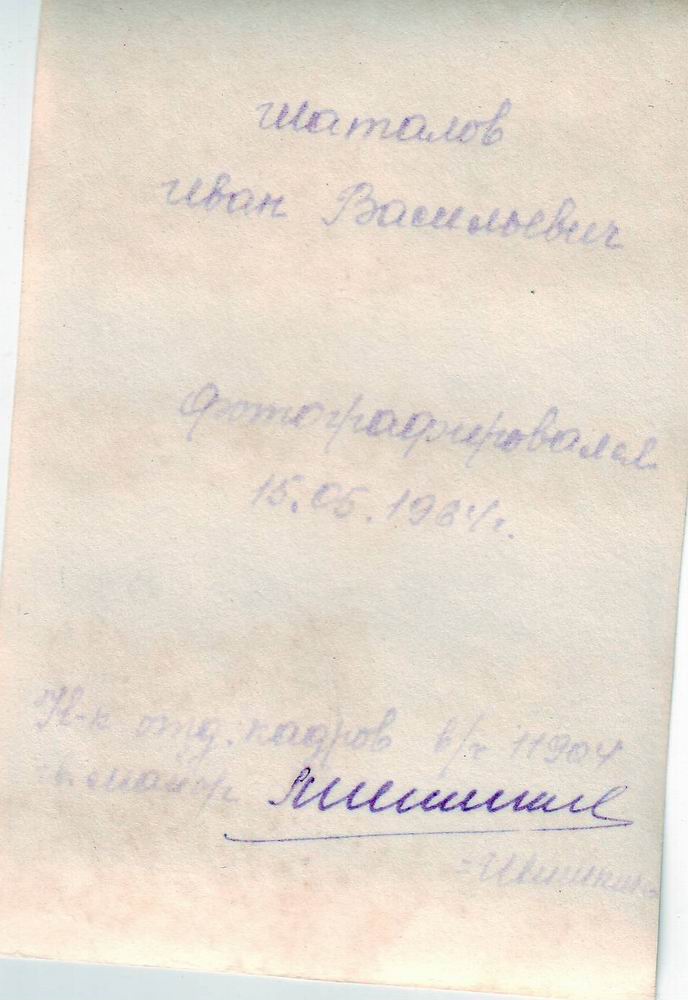 Шаталов
Иван Васильевич
Фотографировался
15.05.1964г.
Н-к отд. кадров в/ч 11904
майор